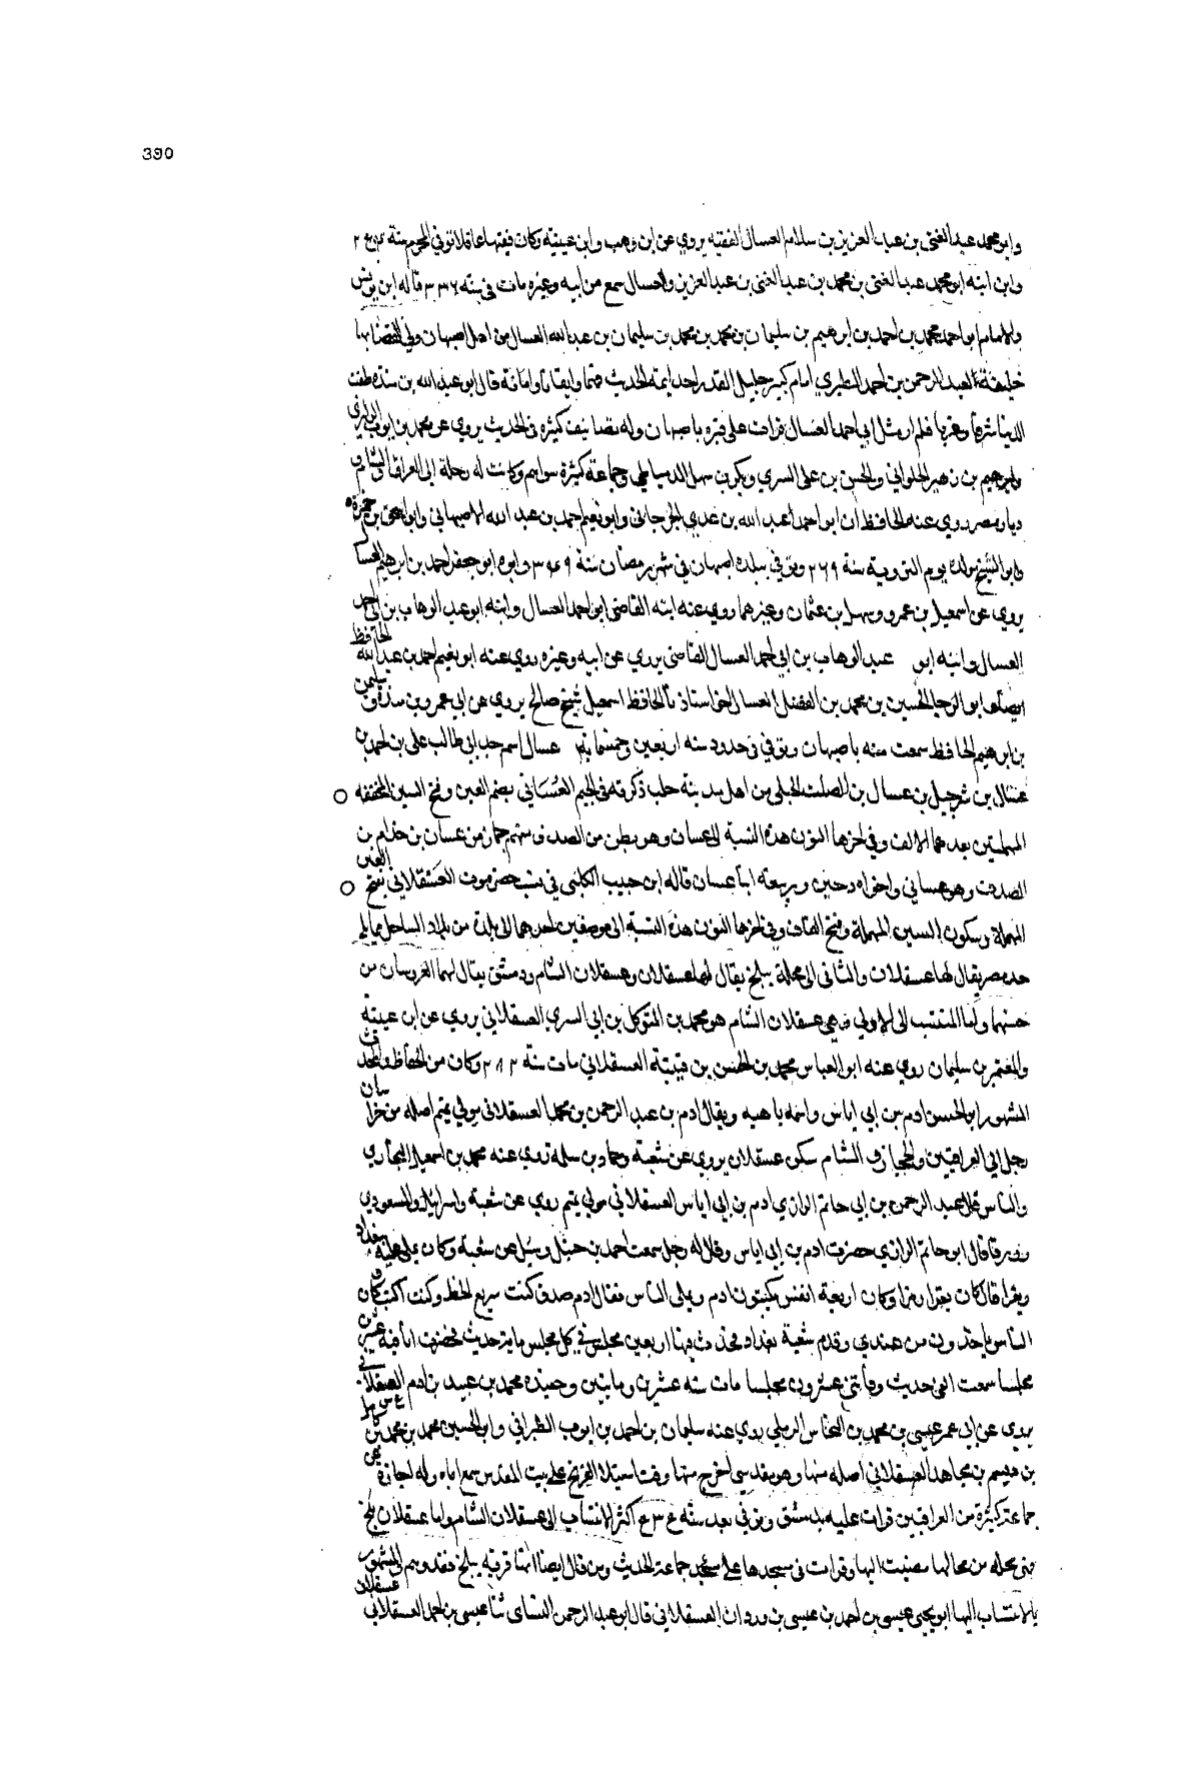 390
وابو محمد عبد الغني بن عبد العزيز بن سلام العسال الفقيه يروي عن ابن وهب وابن عيينة وكان فقيها عاقلا توفي في المحرم سنة
وابن ابنه ابو محمد عبد الغني بن محمد بن عبد الغني بن عبد العزيز العسال سمع من ابيه وغيره مات في سنة ٣٣٦ قاله ابن يونس
والامام ابو احمد محمد بن احمد بن ابرهيم بن سليمان بن محمد بن محمد بن سليمان بن عبد الله العسال من اهل اصبهان ولي القضا بها
خليفة لعبد الرحمن بن احمد الطبري امام كبير جليل القدر احد ايمة الحديث واتقانا وامانة قال ابو عبد الله بن منده طفت
الدنيا شرقا وغربا فلم ار مثل ابي احمد العسال قرات على قبره باصبهان وله تصانيف كثيرة في الحديث يروي عن محمد بن ايوب الرازي
وابرهيم بن زهير الحلواني والحسن بن علي السري وبكر بن سهل الدمياطي وجماعة كثيرة سواهم وكانت له رحلة الى العراق والشام
ديار مصر روى عنه الحافظان ابو احمد عبد الله بن عدي الجرجاني وابو نعيم احمد بن عبد الله الاصبهاني وابو اسحق بن حمزة
وابو الشيخ مولده يوم التروية سنة ٢٦٩ وتوفي ببلده اصبهان في شهر رمضان سنة ٣٤٩ وابوه ابو جعفر احمد بن ابرهيم العسا
يروي عن اسمعيل بن عمرو وسهل بن عثمان وغيرهما روى عنه ابنه القاضي ابو احمد العسال وابنه ابو عبد الوهاب بن ابي احمد
العسال وابنه ابو عبد الوهاب بن ابي احمد العسال القاضي يروي عن ابيه وغيره روى عنه ابو نعيم احمد بن عبد الله الحافظ
ايضا وابو الرجا الحسين بن محمد بن الفضل العسال اخو استاذنا الحافظ اسمعيل شيخ صالح يروي عن ابي عمرو سليمن
بن ابرهيم الحافظ سمعت منه باصبهان وتوفي في حدود سنه اربعين وخمسماية عسال اسم جد ابي طالب علي بن احمد بن
عسال بن شرجيل بن عسال بن الصلت الحبلي من اهل مدينة حلب ذكرته في الجيم العُسَاني بضم العين وفتح السين المخففة
المهملتين بعدهما الالف وفي اخرها النون هذه النسبة الى عسان وهو بطن من الصدف منهم من عسان بن خذام بن
الصدف وهو عساني واخواه دحين وربيعة ابنا عسان قاله ابن حبيب الكلبي في نسب حضرموت العَسْقلاني بفتح العين
المهملة وسكون السين المهملة وفتح القاف وفي اخرها النون هذه النسبة الى موضعين احدهما الى بلدة من بلاد الساحل مما يلي
حد مصر يقال لها عسقلان والثاني الى محلة ببلخ يقال لها عسقلان وعسقلان الشام ودمشق يقال لهما العروسان من
حسنهما واما المنتسب الى الاولى وهي عسقلان الشام هو محمد بن المتوكل بن ابي السري العسقلاني يروي عن ابن عيينة
والمعتمر بن سليمان روى عنه ابو العباس محمد بن الحسن بن قتيبة العسقلاني مات سنة وكان من الحفاظ والمحد
المشهور ابو الحسن ادم بن ابي اياس واسمه ناهيه ويقال ادم بن عبد الرحمن بن محمد العسقلاني مولى تيم اصله من خراسان
رحل الى العراقين والحجاز والشام سكن عسقلان يروي عن شعبة وحماد بن سلمه روى عنه محمد بن اسمعيل البخاري
والناس قال عبد الرحمن بن ابي حاتم الرازي ادم بن ابي اياس العسقلاني مولى تيم روى عن شعبة واسرائيل والمسعودي
وورقا قال ابو حاتم الرازي حضرت ادم بن ابي اياس وقال له رجل سمعت احمد بن حنبل وسئل عن شعبة وكان يملي عليه ببغداد
ويقرا قال كان يقرا وكان اربعة انفس يكتبون ادم ويملي الناس فقال ادم صدق كنت سريع الخط وكنت اكتب وكان
الناس ياخذون من عندي وقدم شعبة بغداد فحدث فيها اربعين مجلس في كل مجلس ماية حديث فحضرت انا فيه عشرين
مجلسا سمعت الفي حديث وفاتني عشرون مجلسا مات سنه عشرين ومايتين وحفيده محمد بن عبيد بن ادم العسقلاني
يروي عن ابي عمر عيسى بن محمد بن النحاس الرملي روى عنه سليمان بن احمد بن ايوب الطبراني وابو الحسين محمد بن محمد بن كامل
بن ديسم بن مجاهد العسقلاني اصله منها وهو مقدسي اخرج منها وقت استيلا الفرنج على بيت المقدس سمع اباه وله اجازة عن
جماعة كثيرة من العراقيين قرات عليه بدمشق وتوفي بعد سنه اكثر الانتساب الى عسقلان الشام واما عسقلان بلخ
فهي محله من محالها مضيت اليها وقرات في مسجدها على جماعة الحديث ومن قال ايضا انها قريه ببلخ فقد وهم المشهور
بالانتساب اليها ابو يحيى عيسى بن احمد بن عيسى بن وردان العسقلاني قال ابو عبد الرحمن النساى ثنا عيسى بن احمد العسقلاني عسقلان